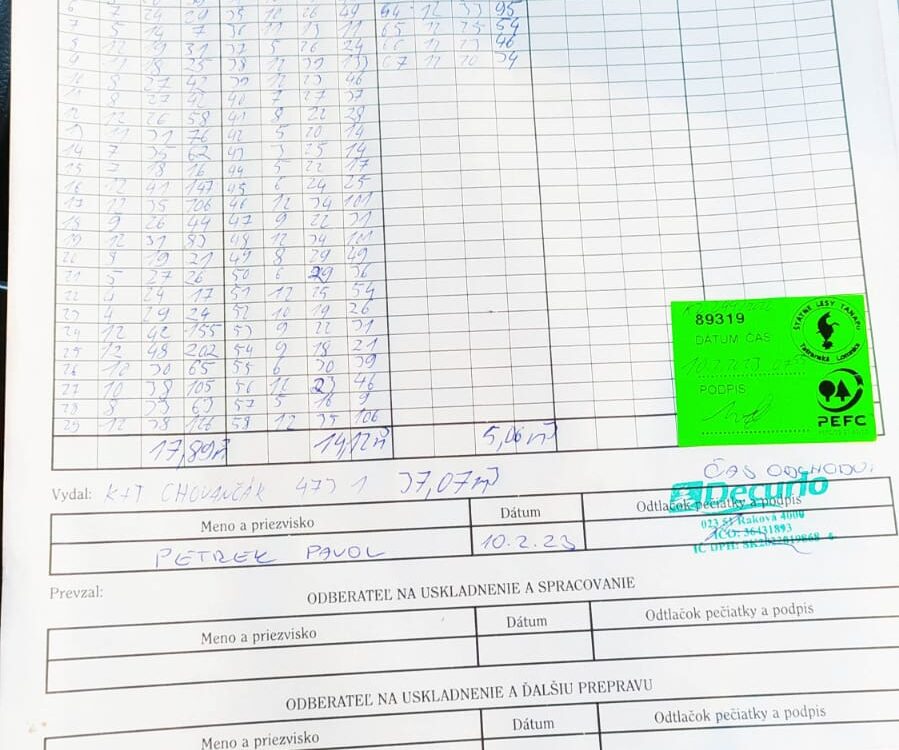 6 7 24 29 35 10 26 49 64 12 33 95
7 5 14 7 36 11 13 11 65 12 25 54
8 12 19 31 37 5 26 24 66 12 23 46
9 11 18 25 38 12 39 133 67 12 20 34
10 8 27 42 39 12 23 46
11 8 27 42 40 7 27 37
12 12 26 58 41 8 22 28
13 11 31 76 42 5 20 14
14 7 35 62 43 3 25 14
15 7 18 16 44 5 22 17
16 12 41 147 45 6 24 25
17 12 35 106 46 12 34 101
18 9 26 44 47 9 22 31
19 12 31 83 48 12 34 101
20 8 19 21 49 8 29 49
21 5 27 26 50 6 29 36
22 4 24 17 51 12 25 54
23 4 29 24 52 10 19 26
24 12 42 155 53 9 22 31
25 12 48 202 54 9 18 21
26 10 30 65 55 6 30 39
27 10 38 105 56 12 23 46
28 8 33 63 57 5 16 9
29 12 38 126 58 12 35 106
17,89 m³ 14,12 m³ 5,06 m³
89319
DÁTUM ČAS
10.2.23
PODPIS
ŠTÁTNE LESY TANAPU
Tatranská Lomnica
PEFC
Vydal: K+T CHOVANČÁK 473 1 37,07 m³
ČAS ODCHODU:
Meno a priezvisko Dátum Odtlačok pečiatky a podpis
PETREK PAVOL 10.2.23
Decurio
023 51 Raková 4000
IČO: 36431893
Prevzal:
ODBERATEĽ NA USKLADNENIE A SPRACOVANIE
Meno a priezvisko Dátum Odtlačok pečiatky a podpis
ODBERATEĽ NA USKLADNENIE A ĎALŠIU PREPRAVU
Meno a priezvisko Dátum Odtlačok pečiatky a podpis